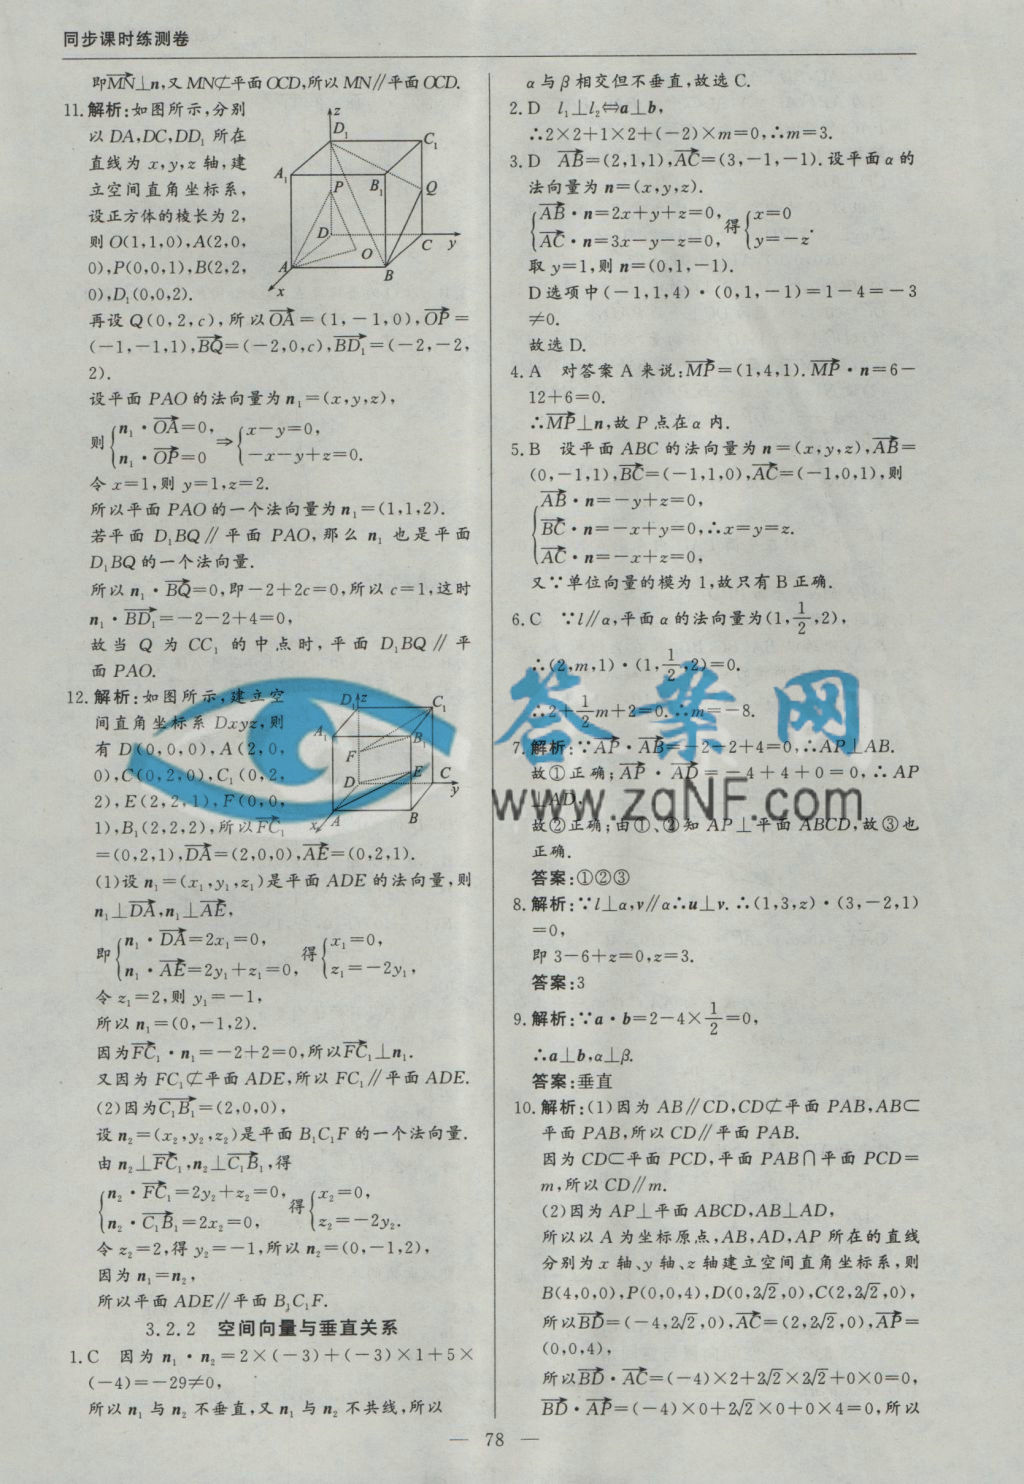 同步课时练测卷
即MN⊥n,又MN⊄平面OCD,所以MN∥平面OCD.
11.解析:如图所示,分别
以DA,DC,DD₁所在
直线为x,y,z轴,建
立空间直角坐标系,
设正方体的棱长为2,
则O(1,1,0),A(2,0,
0),P(0,0,1),B(2,2,
0),D₁(0,0,2).
z
D₁
C₁
A₁
P
B₁
Q
D
O
C
y
A
B
x
再设Q(0,2,c),所以OA=(1,-1,0),OP=
(-1,-1,1),BQ=(-2,0,c),BD₁=(-2,-2,
2).
设平面PAO的法向量为n₁=(x,y,z),
则{n₁·OA=0, n₁·OP=0⇒{x-y=0, -x-y+z=0.
令x=1,则y=1,z=2.
所以平面PAO的一个法向量为n₁=(1,1,2).
若平面D₁BQ∥平面PAO,那么n₁也是平面
D₁BQ的一个法向量.
所以n₁·BQ=0,即-2+2c=0,所以c=1,这时
n₁·BD₁=-2-2+4=0,
故当Q为CC₁的中点时,平面D₁BQ∥平
面PAO.
12.解析:如图所示,建立空
间直角坐标系Dxyz,则
有D(0,0,0),A(2,0,
0),C(0,2,0),C₁(0,2,
2),E(2,2,1),F(0,0,
1),B₁(2,2,2),所以FC₁
D₁
z
C₁
A₁
B₁
F
E
D
C
y
A
B
x
=(0,2,1),DA=(2,0,0),AE=(0,2,1).
(1)设n₁=(x₁,y₁,z₁)是平面ADE的法向量,则
n₁⊥DA,n₁⊥AE,
即{n₁·DA=2x₁=0, n₁·AE=2y₁+z₁=0,得{x₁=0, z₁=-2y₁,
令z₁=2,则y₁=-1,
所以n₁=(0,-1,2).
因为FC₁·n₁=-2+2=0,所以FC₁⊥n₁.
又因为FC₁⊄平面ADE,所以FC₁∥平面ADE.
(2)因为C₁B₁=(2,0,0),
设n₂=(x₂,y₂,z₂)是平面B₁C₁F的一个法向量.
由n₂⊥FC₁,n₂⊥C₁B₁,得
{n₂·FC₁=2y₂+z₂=0, n₂·C₁B₁=2x₂=0,得{x₂=0, z₂=-2y₂.
令z₂=2,得y₂=-1,所以n₂=(0,-1,2),
因为n₁=n₂,
所以平面ADE∥平面B₁C₁F.
3.2.2 空间向量与垂直关系
1.C 因为n₁·n₂=2×(-3)+(-3)×1+5×
(-4)=-29≠0,
所以n₁与n₂不垂直,又n₁与n₂不共线,所以
α与β相交但不垂直,故选C.
2.D l₁⊥l₂⇔a⊥b,
∴2×2+1×2+(-2)×m=0,∴m=3.
3.D AB=(2,1,1),AC=(3,-1,-1).设平面α的
法向量为n=(x,y,z).
{AB·n=2x+y+z=0, AC·n=3x-y-z=0,得{x=0 y=-z.
取y=1,则n=(0,1,-1).
D选项中(-1,1,4)·(0,1,-1)=1-4=-3
≠0.
故选D.
4.A 对答案A来说:MP=(1,4,1).MP·n=6-
12+6=0.
∴MP⊥n,故P点在α内.
5.B 设平面ABC的法向量为n=(x,y,z),AB=
(0,-1,1),BC=(-1,1,0),AC=(-1,0,1),则
{AB·n=-y+z=0,
BC·n=-x+y=0,∴x=y=z.
AC·n=-x+z=0,
又∵单位向量的模为1,故只有B正确.
6.C ∵l∥α,平面α的法向量为(1,1/2,2),
∴(2,m,1)·(1,1/2,2)=0.
∴2+1/2m+2=0.∴m=-8.
7.解析:∵AP·AB=-2-2+4=0,∴AP⊥AB.
故①正确;AP·AD=-4+4+0=0,∴AP
⊥AD.
故②正确;由①、②知AP⊥平面ABCD,故③也
正确.
答案:①②③
8.解析:∵l⊥α,v∥α∴u⊥v.∴(1,3,z)·(3,-2,1)
=0,
即3-6+z=0,z=3.
答案:3
9.解析:∵a·b=2-4×1/2=0,
∴a⊥b,α⊥β.
答案:垂直
10.解析:(1)因为AB∥CD,CD⊄平面PAB,AB⊂
平面PAB,所以CD∥平面PAB.
因为CD⊂平面PCD,平面PAB∩平面PCD=
m,所以CD∥m.
(2)因为AP⊥平面ABCD,AB⊥AD,
所以以A为坐标原点,AB,AD,AP所在的直线
分别为x轴、y轴、z轴建立空间直角坐标系,则
B(4,0,0),P(0,0,4),D(0,2√2,0),C(2,2√2,0),
所以BD=(-4,2√2,0),AC=(2,2√2,0),AP=
(0,0,4),
所以BD·AC=(-4)×2+2√2×2√2+0×0=0,
BD·AP=(-4)×0+2√2×0+0×4=0,所以
答案网
www.zqNF.com
— 78 —